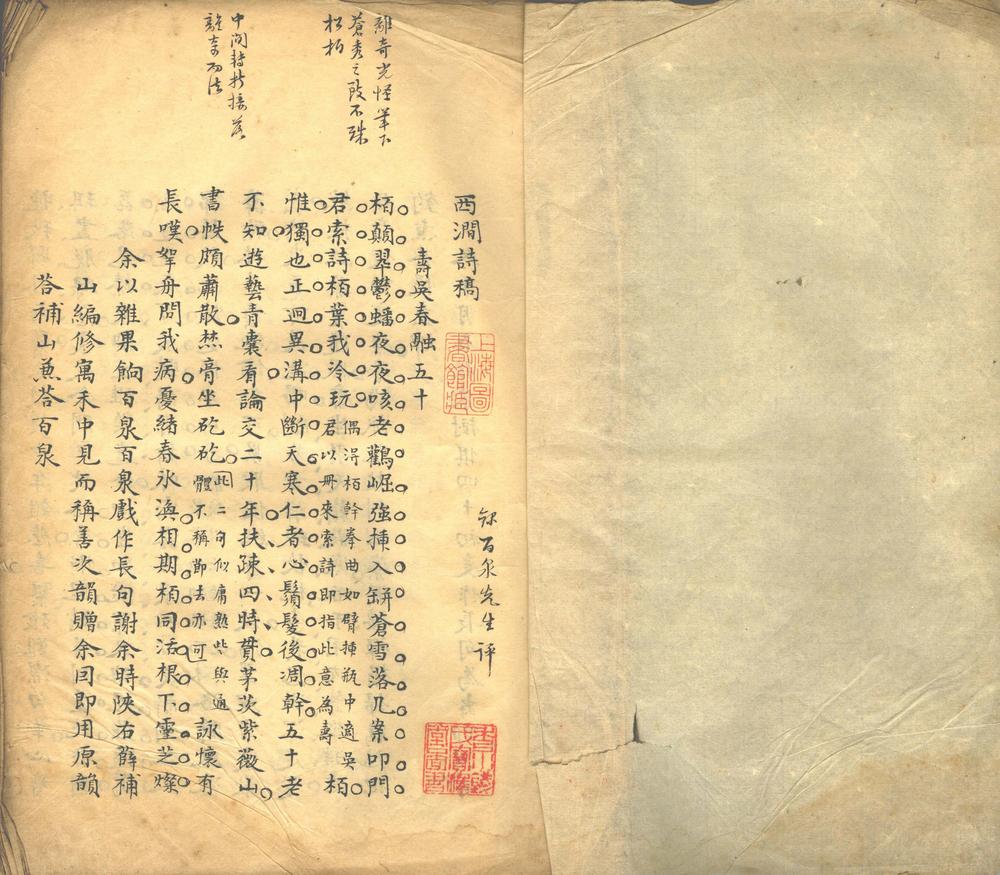 離奇光怪筆下
蒼秀之致不殊
松柏
中間轉折接落
離奇而法
西澗詩稿
上海圖書館藏
錄百泉先生評
壽吳春融五十
栢顛翠鬱蟠夜夜咳老鸛崛強揷入缾蒼雪落几案叩門
君索詩栢葉我冷玩君以冊來索詩即指此意為壽
偶浔栢幹拳曲如臂揷瓶中適吳栢
惟獨也正迥異溝中斷天寒仁者心鬚髮後凋幹五十老
不知遊藝青囊看論交二十年扶踈四時貫茅茨紫薇山
書帙頗蕭散焚膏坐矻矻此二句似庸熟些與通
體不稱節去亦可詠懷有
長嘆拏舟問我病憂緒春氷渙相期栢同活根下靈芝燦
余以雜果餉百泉百泉戲作長句謝余時陝右薛補
山編修寓禾中見而稱善次韻贈余因即用原韻
荅補山蕉荅百泉